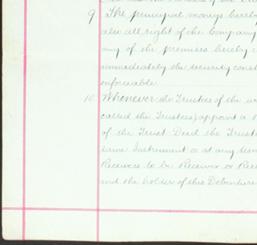 9 The principal moneys hereby
also all right of the Company
any of the premises hereby
immediately the security const
enforceable
10 Whenever the Trustees of the
called the Trustees) appoint a
of the Trust Deed the Trust
same Instrument or at any time
Receivers to be Receiver or Rece
and the holder of this Debenture